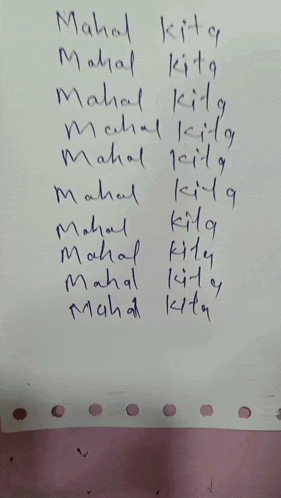 Mahal kita
Mahal kita
Mahal kita
Mahal kita
Mahal kita
Mahal kita
Mahal kita
Mahal kita
Mahal kita
Mahal kita